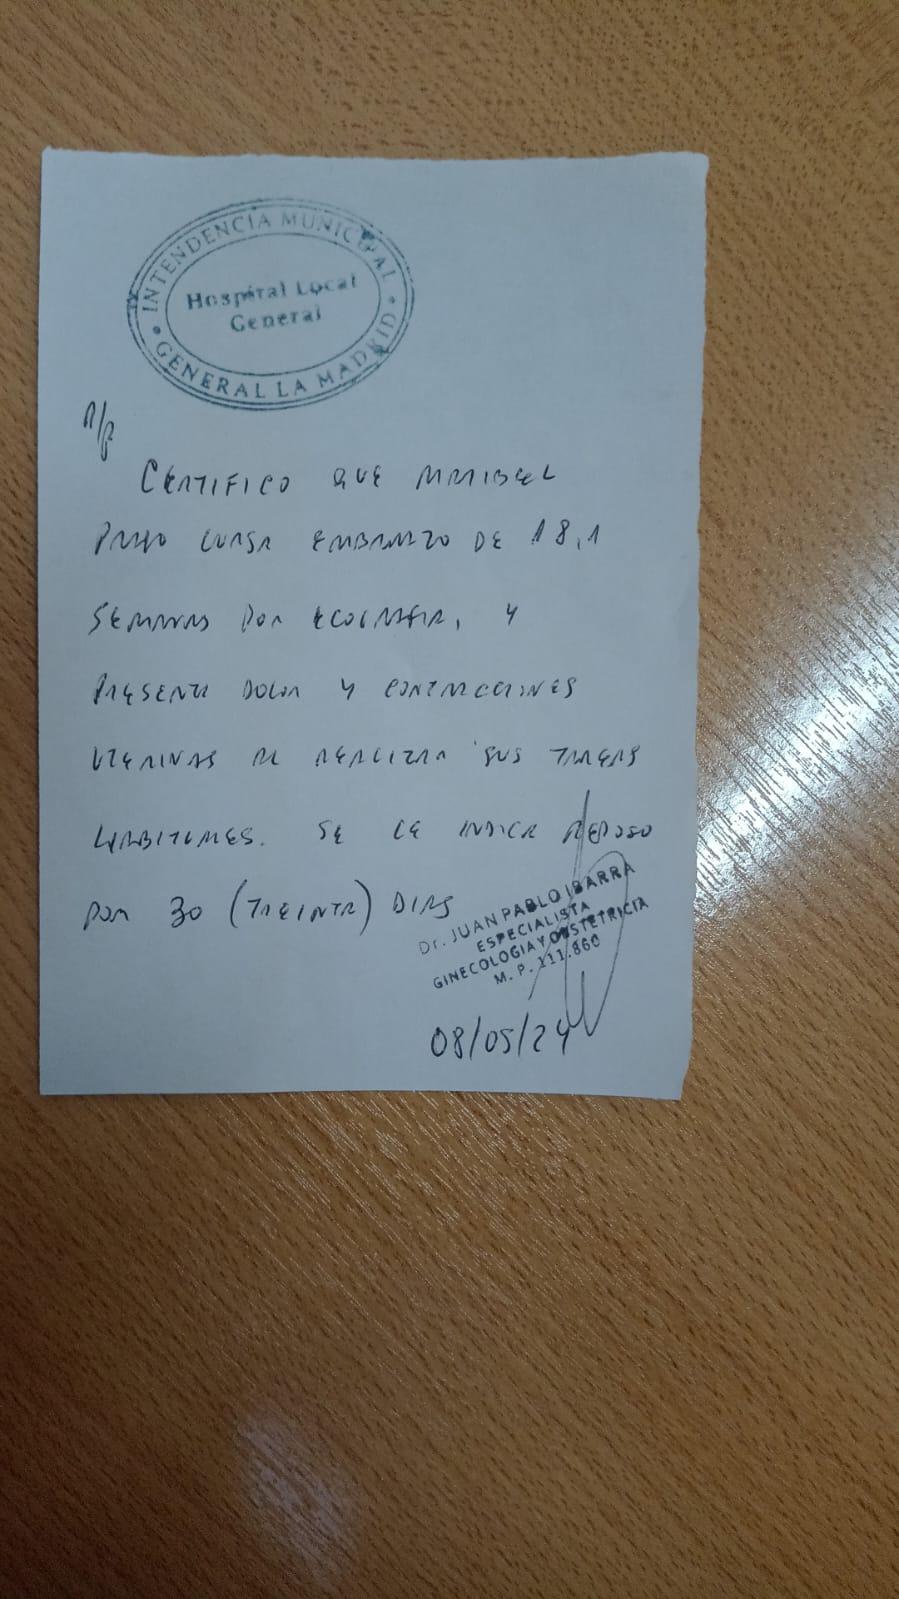 INTENDENCIA MUNICIPAL
Hospital Local
General
GENERAL LA MADRID
R/P
CERTIFICO QUE MARIBEL
CURSA EMBARAZO DE 18,1
SEMANAS POR ECOGRAFIA, Y
PRESENTA DOLOR Y CONTRACCIONES
UTERINAS AL REALIZAR SUS TAREAS
HABITUALES. SE LE INDICA REPOSO
POR 30 (TREINTA) DIAS
Dr. JUAN PABLO IBARRA
ESPECIALISTA
GINECOLOGIA Y OBSTETRICIA
M. P. 111.860
08/05/24